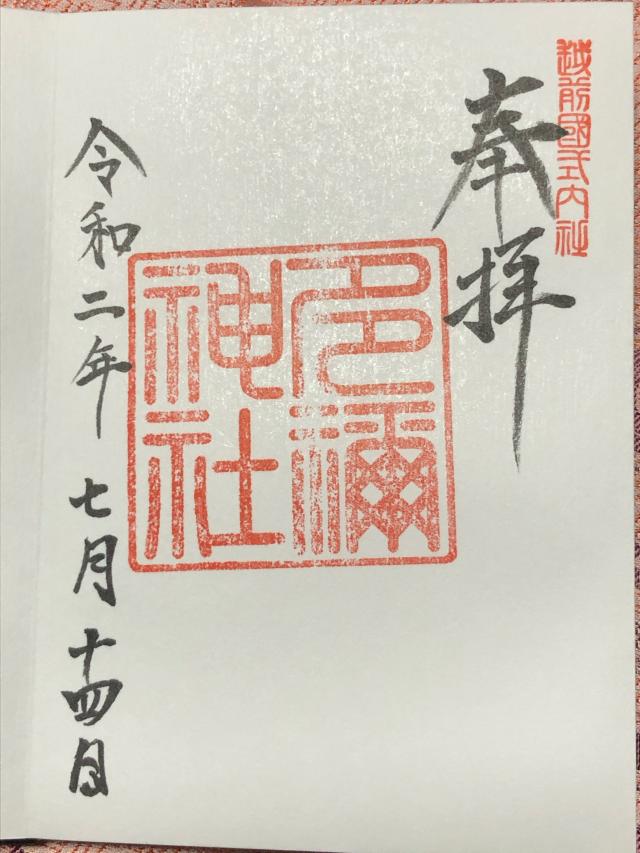 越前國式内社
奉拝
神社
令和二年 七月十四日